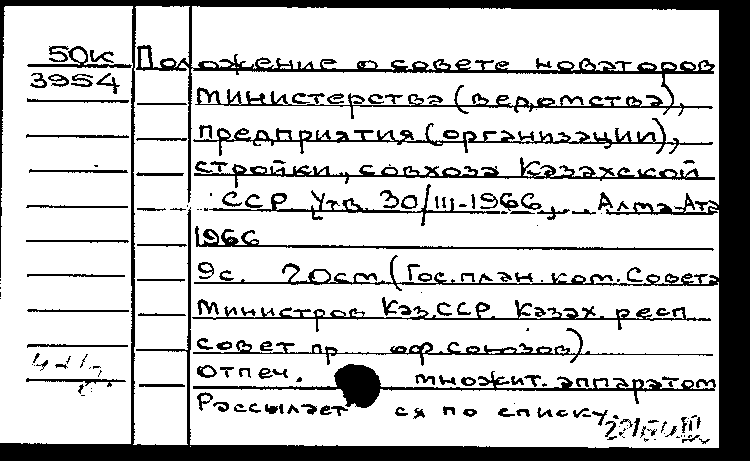 50к Положение о совете новаторов
3954 министерства (ведомства),
предприятия (организации),
стройки, совхоза Казахской
ССР Утв. 30/III-1966, Алма-Ата
1966
9с. 20см (Гос.план.ком.Совета
Министров Каз.ССР. Казах. респ
совет пр оф.союзов).
отпеч. множит.аппаратом
Рассылает ся по списку.